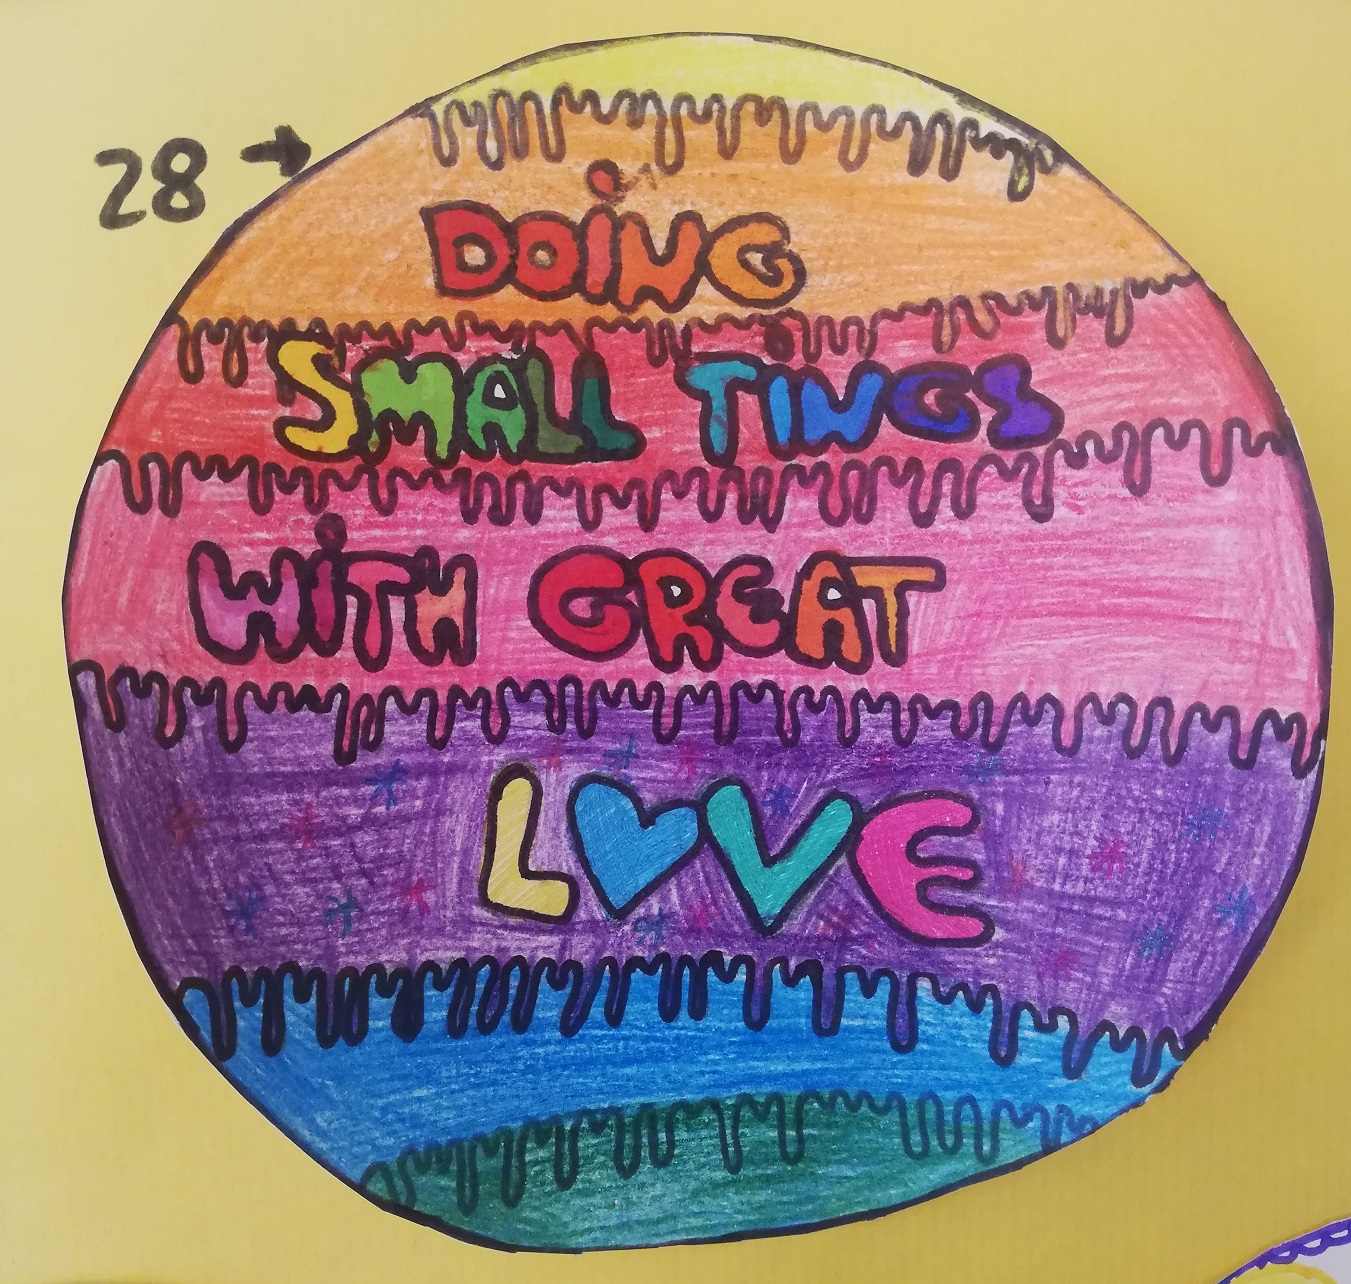 28 →
DOiNG
SMALL TiNGS
WiTH GREAT
LOVE